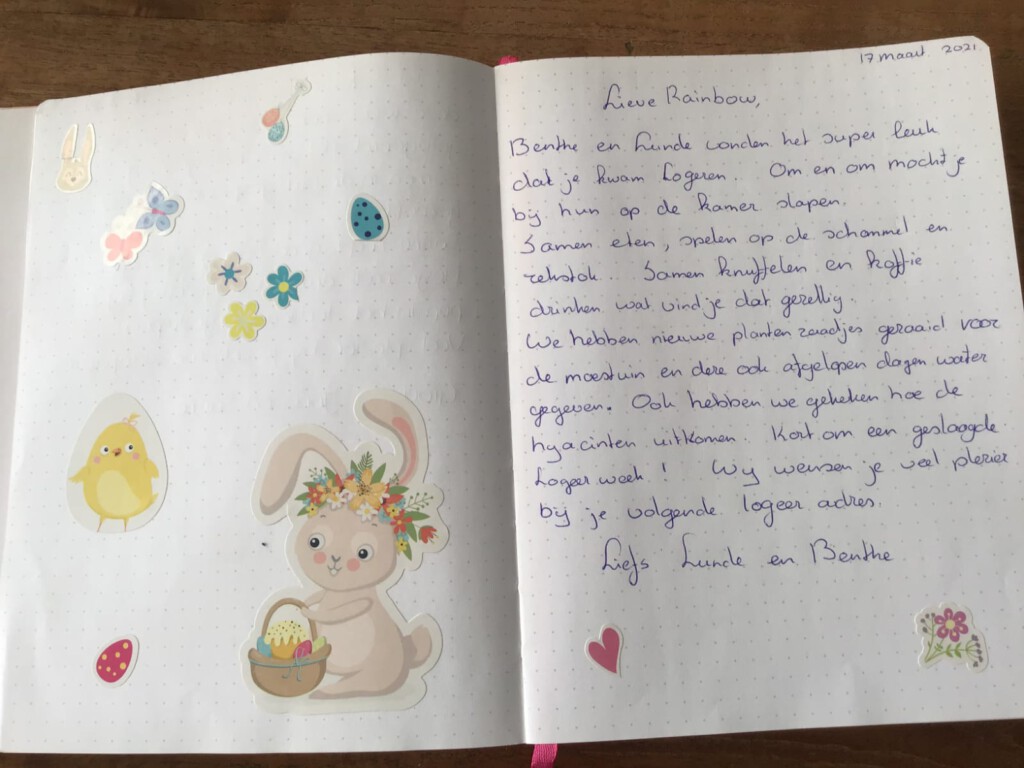 17 maart 2021
Lieve Rainbow,
Benthe en Lunde vonden het super leuk
dat je kwam logeren. Om en om mocht je
bij hun op de kamer slapen.
Samen eten, spelen op de schommel en
rekstok. Samen knuffelen en koffie
drinken wat vind je dat gezellig.
We hebben nieuwe planten zaadjes gezaaid voor
de moestuin en deze ook afgelopen dagen water
gegeven. Ook hebben we gekeken hoe de
hyacinten uitkomen. Kort om een geslaagde
Logeer week! Wy wensen je veel plezier
bij je volgende logeer adres.
Liefs Lunde en Benthe